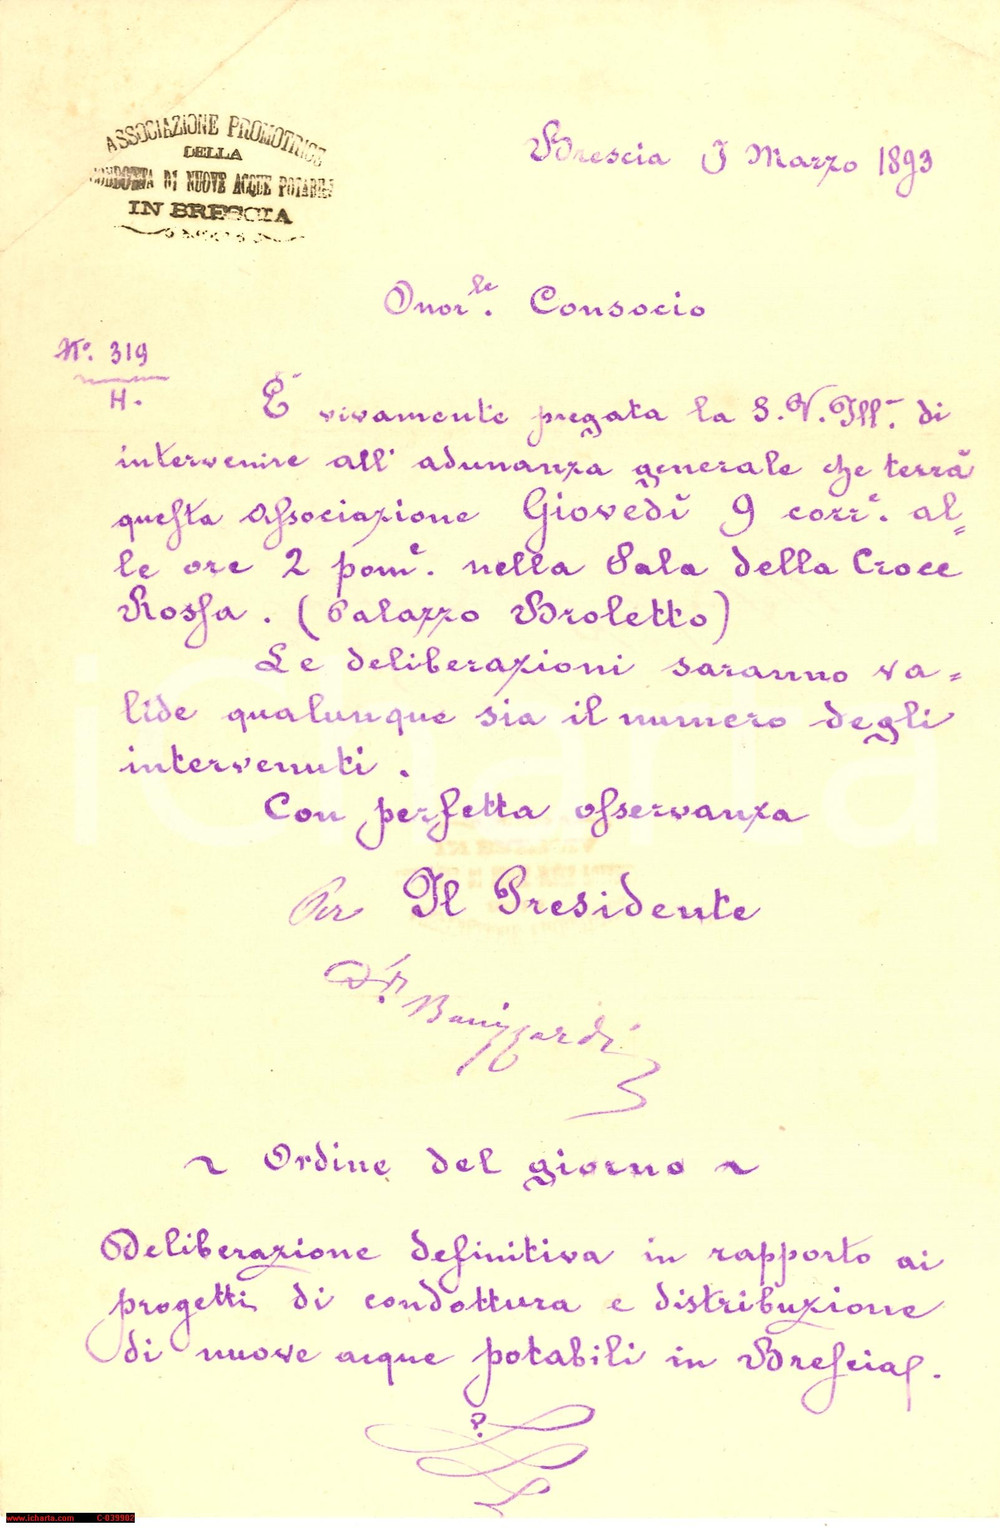 ASSOCIAZIONE PROMOTRICE
DELLA
CONDOTTA DI NUOVE ACQUE POTABILI
IN BRESCIA
Brescia 5 Marzo 1893
Onor.le Consocio
No. 319
H.
È vivamente pregata la S. V. Ill. di
intervenire all' adunanza generale che terrà
questa Associazione Giovedì 9 corr.e al=
le ore 2 pom.e nella Sala della Croce
Rossa. (Palazzo Broletto)
Le deliberazioni saranno va=
lide qualunque sia il numero degli
intervenuti.
Con perfetta osservanza
Per Il Presidente
~ Ordine del giorno ~
Deliberazione definitiva in rapporto ai
progetti di condottura e distribuzione
di nuove acque potabili in Brescia.
iCharta
www.icharta.com C-039902